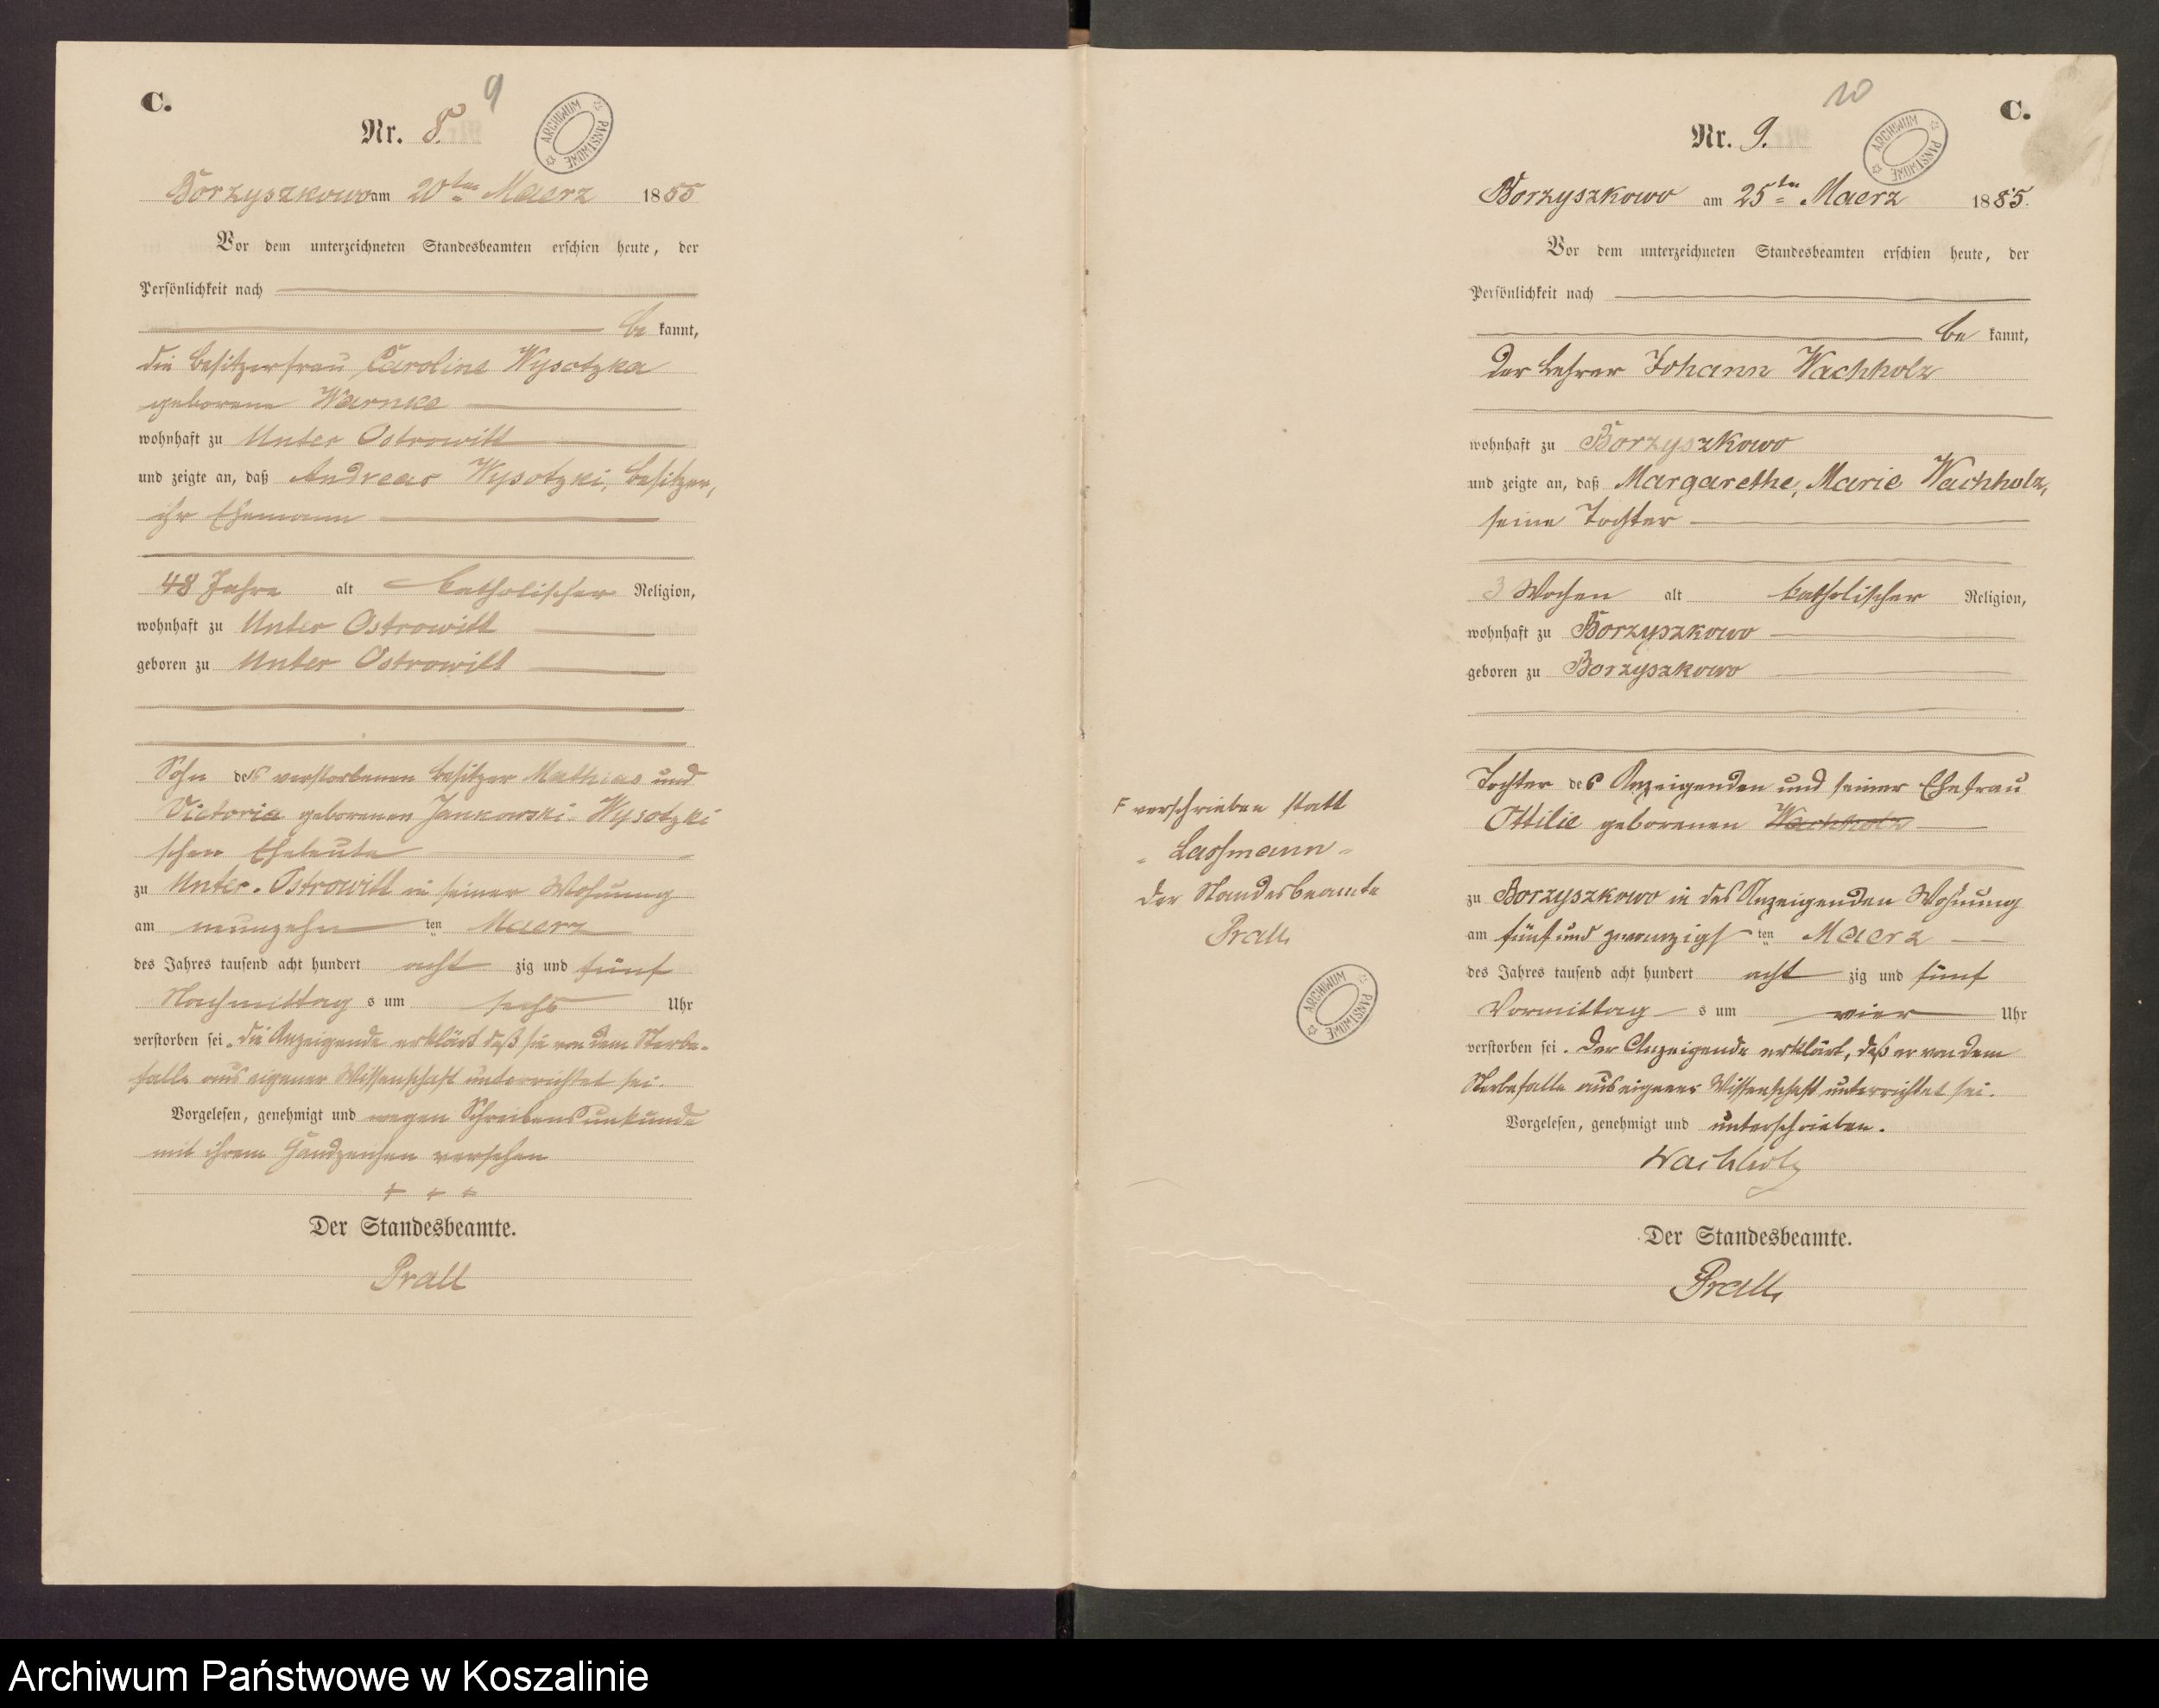 C.
9
Nr. 8.
ARCHIWUM PAŃSTWOWE
Borzyszkowo am 20ten Maerz 1885
Vor dem unterzeichneten Standesbeamten erschien heute, der
Persönlichkeit nach
be kannt,
die Besitzerfrau Caroline Wysotzka
geborene Warnke
wohnhaft zu Unter Ostrowitt
und zeigte an, daß Andreas Wysotzki, Besitzer,
ihr Ehemann
48 Jahre alt katholischer Religion,
wohnhaft zu Unter Ostrowitt
geboren zu Unter Ostrowitt
Sohn des verstorbenen Besitzer Mathias und
Victoria geborenen Jankowski Wysotzki
schen Eheleute
zu Unter-Ostrowitt in seiner Wohnung
am neunzehn ten Maerz
des Jahres tausend acht hundert acht zig und fünf
Nachmittag s um sechs Uhr
verstorben sei. Die Anzeigende erklärt daß sie von dem Sterbe-
falle aus eigener Wissenschaft unterrichtet sei.
Vorgelesen, genehmigt und wegen Schreibensunkunde
mit ihrem Handzeichen versehen
+ + +
Der Standesbeamte.
Prall
F verschrieben statt
"Lassmann"
Der Standesbeamte
Prall
ARCHIWUM PAŃSTWOWE
10
C.
Nr. 9.
ARCHIWUM PAŃSTWOWE
Borzyszkowo am 25ten Maerz 1885.
Vor dem unterzeichneten Standesbeamten erschien heute, der
Persönlichkeit nach
be kannt,
der Lehrer Johann Wachholz
wohnhaft zu Borzyszkowo
und zeigte an, daß Margarethe, Marie Wachholz,
seine Tochter
3 Wochen alt katholischer Religion,
wohnhaft zu Borzyszkowo
geboren zu Borzyszkowo
Tochter des Anzeigenden und seiner Ehefrau
Ottilie geborenen Wachholz
zu Borzyszkowo in des Anzeigenden Wohnung
am fünf und zwanzigs ten Maerz
des Jahres tausend acht hundert acht zig und fünf
Vormittag s um vier Uhr
verstorben sei. Der Anzeigende erklärt, daß er von dem
Sterbefalle aus eigener Wissenschaft unterrichtet sei.
Vorgelesen, genehmigt und unterschrieben.
Wachholz
Der Standesbeamte.
Prall
Archiwum Państwowe w Koszalinie